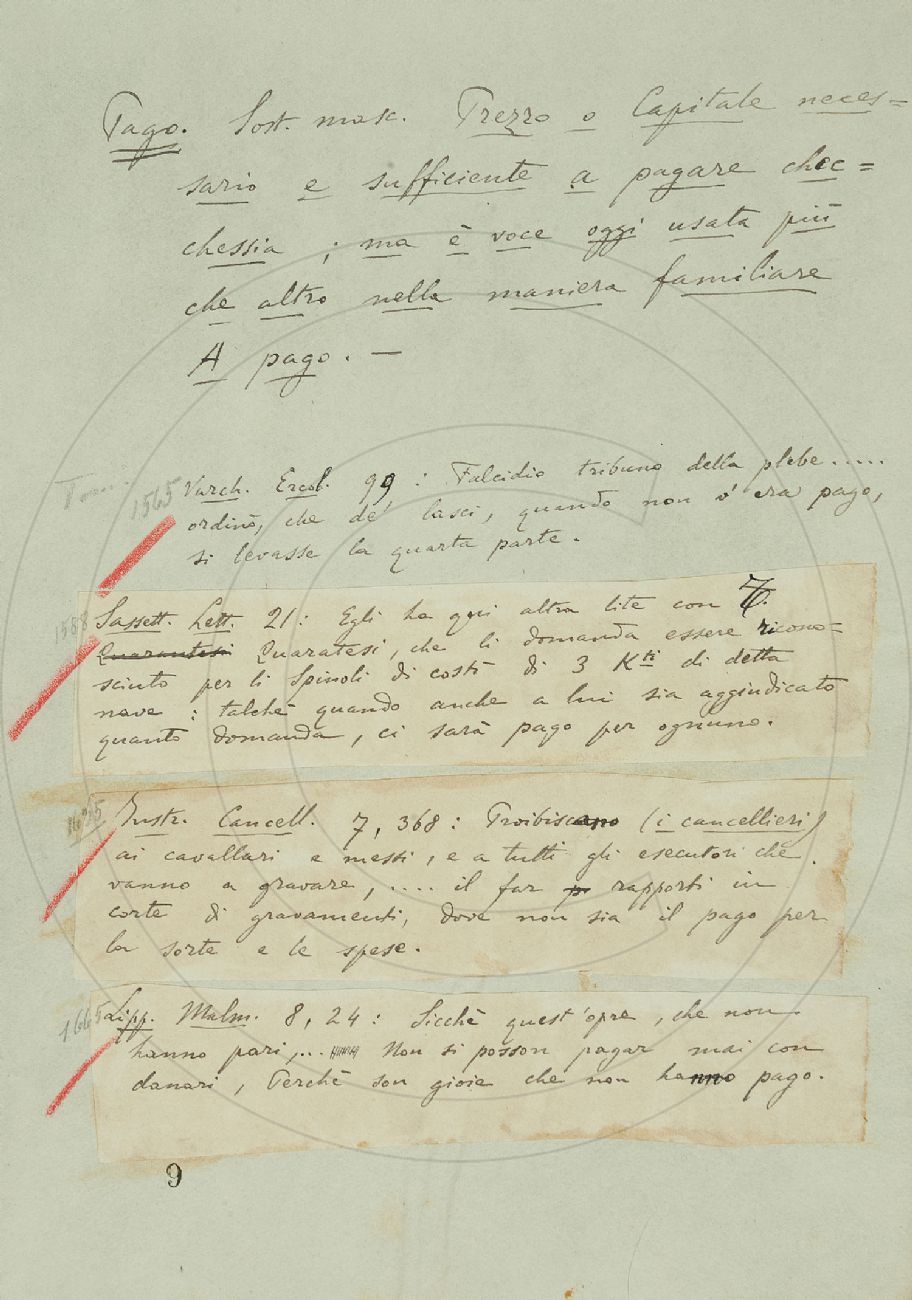 Pago. Sost. masc. Prezzo o Capitale neces=
sario e sufficiente a pagare chec=
chessia ; ma è voce oggi usata più
che altro nella maniera familiare
A pago. —
1565 Varch. Ercol. 99 : Falcidio tribuno della plebe.....
ordinò, che de' lasci, quando non v' era pago,
si levasse la quarta parte.
1588 Sassett. Lett. 21 : Egli ha qui altra lite con
Quarantesi Quaratesi, che li domanda essere ricono=
sciuto per li Spinoli di costì di 3 K.ti di detta
nave : talchè quando anche a lui sia aggiudicato
quanto domanda, ci sarà pago per ognuno.
1625 Instr. Cancell. 7, 368 : Proibiscano (i cancellieri)
ai cavallari e messi, e a tutti gli esecutori che
vanno a gravare, .... il far rapporti in
corte di gravamenti, dove non sia il pago per
la sorte e le spese.
1665 Lipp. Malm. 8, 24 : Sicchè quest'opre, che non
hanno pari,... Non si posson pagar mai con
danari, Perchè son gioie che non hanno pago.
9